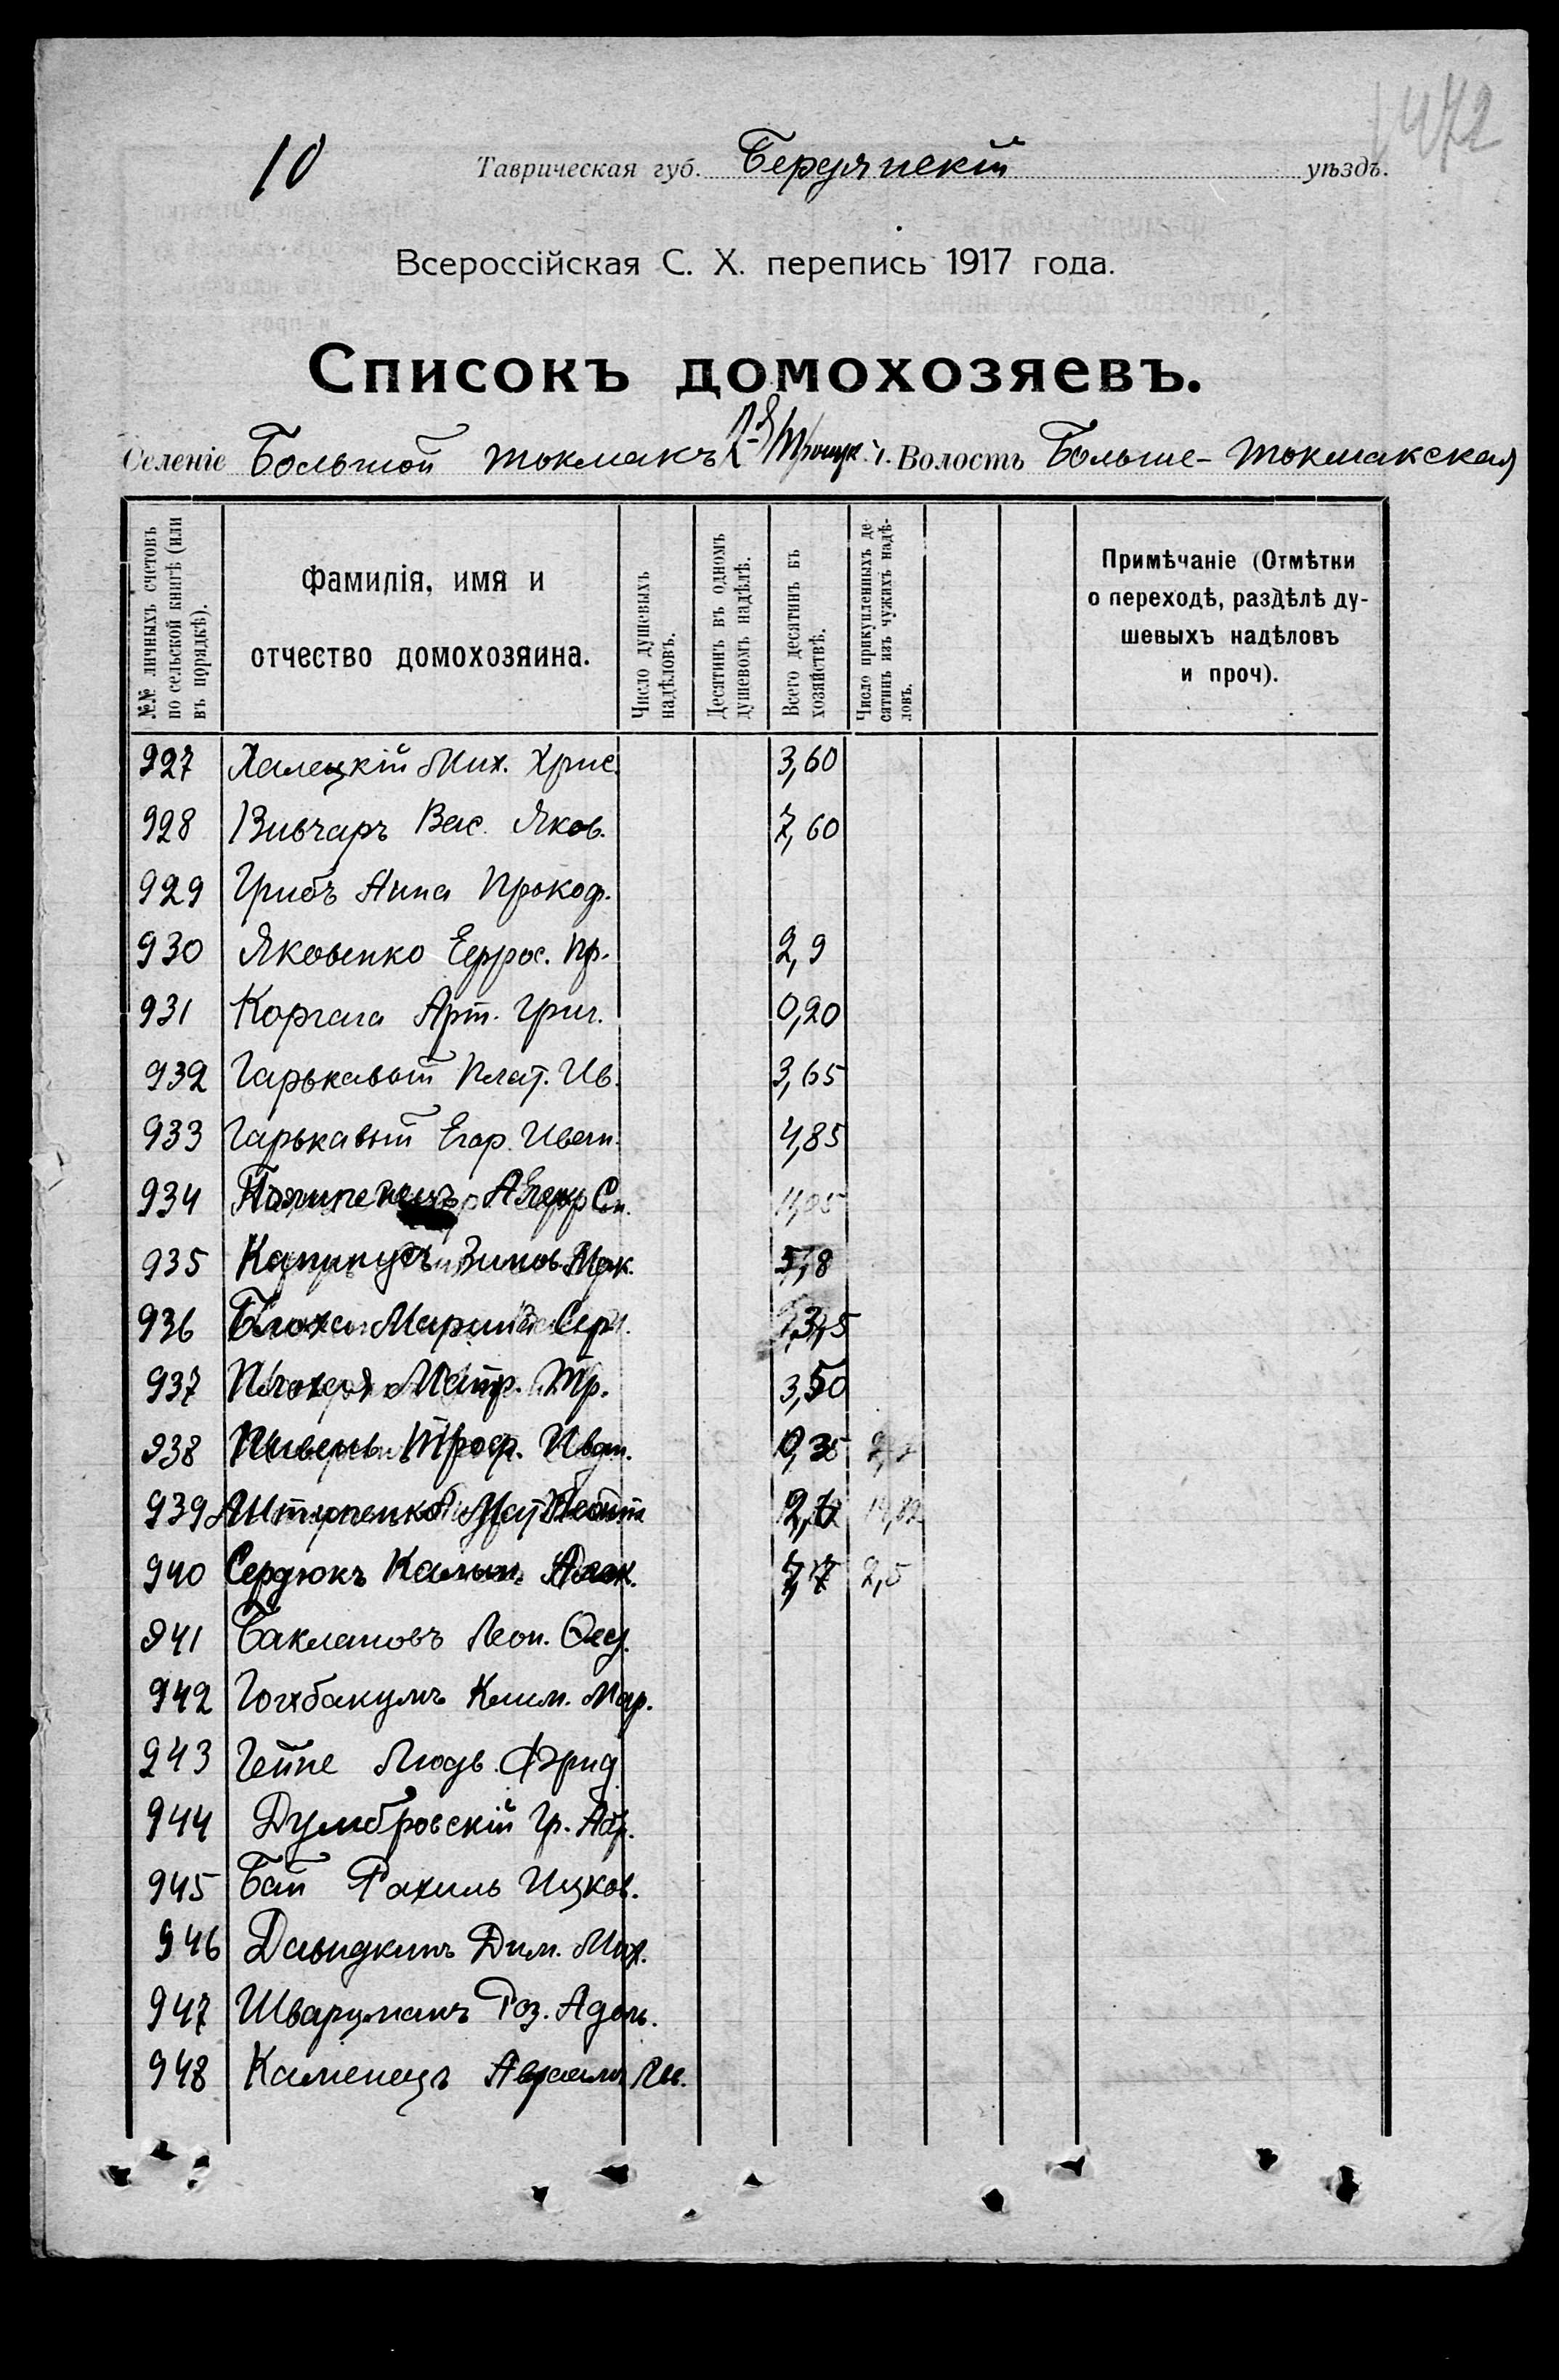 10
472
Таврическая губ. Бердянскій уѣздъ.
Всероссійская С. Х. перепись 1917 года.
Списокъ домохозяевъ.
Селеніе Большой Токмакъ 2-й Волость Больше-Токмакская
№№ личныхъ счетовъ по сельской книгѣ (или въ порядкѣ).
Фамилія, имя и отчество домохозяина.
Число душевыхъ надѣловъ.
Десятинъ въ одномъ душевомъ надѣлѣ.
Всего десятинъ въ хозяйствѣ.
Число прикупленныхъ десятинъ изъ чужихъ надѣловъ.
Примѣчаніе (Отмѣтки о переходѣ, раздѣлѣ душевыхъ надѣловъ и проч).
927 Халецкій Мих. Хрис. 3,60
928 Вивчаръ Вас. Яков. 7,60
929 Грибъ Анна Прокоф.
930 Яковенко Ефрос. Пр. 2,9
931 Коргага Арт. Григ. 0,20
932 Гарькавый Плат. Ив. 3,65
933 Гарькавый Егор. Иван. 4,85
934
935 Зинов. Мак. 5,8
936 Блоха Марина Сер.
937 Матр. Тр. 3,50
938 Пивень Троф. Иван. 0,35
939
940 Сердюкъ Калин. 7,7 2,5
941 Баклановъ Леон. Фед.
942 Клим. Мар.
943 Гейне Людв. Фрид.
944 Думбровскій Гр. Абр.
945 Бай Рахиль Ицков.
946 Давидкинъ Дим. Мих.
947 Шварцманъ Роз. Адоль.
948 Каменецъ Авраамъ